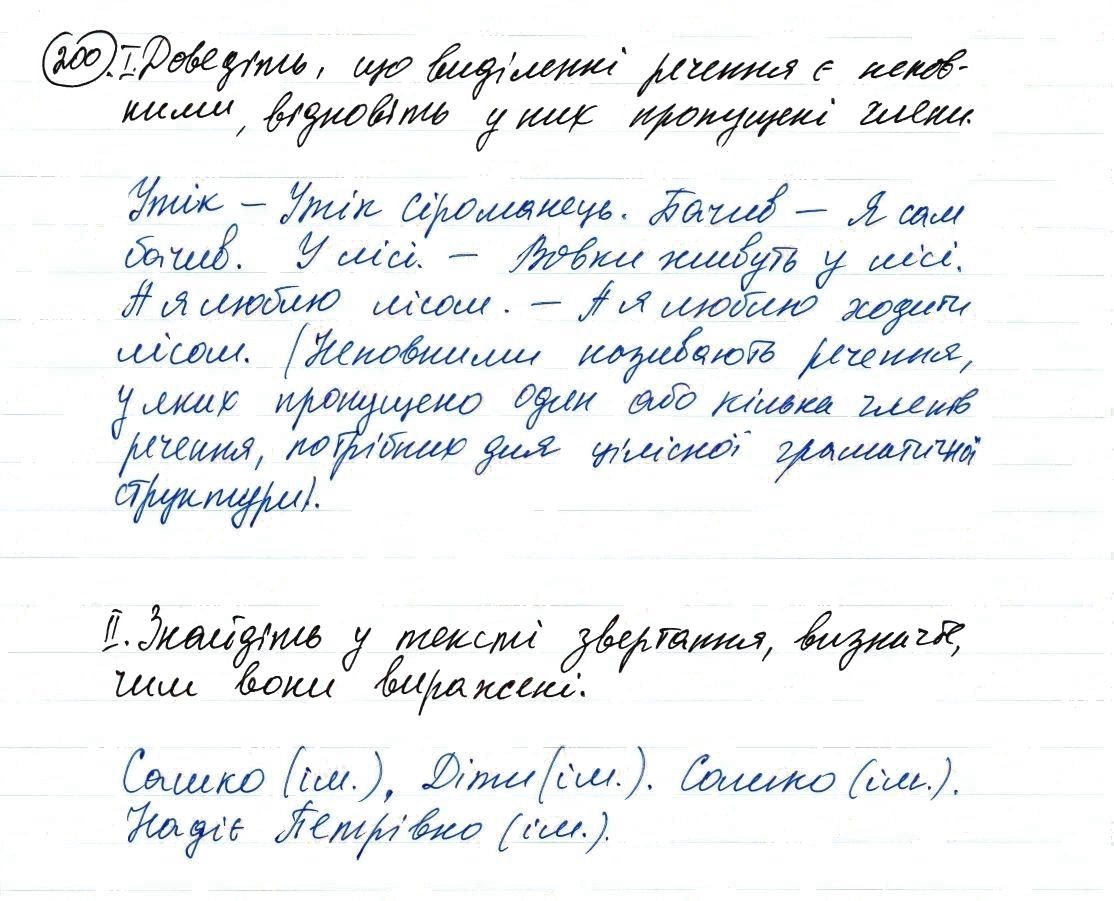 200. I. Доведіть, що виділенні речення є непов-
ними, відновіть у них пропущені члени.
Утік – Утік сіроманець. Бачив – Я сам
бачив. У лісі. – Вовки живуть у лісі.
А я люблю лісом. – А я люблю ходити
лісом. (Неповними називають речення,
у яких пропущено один або кілька членів
речення, потрібних для цілісної граматичної
структури).
II. Знайдіть у тексті звертання, визначте,
чим вони виражені.
Сашко (ім.), Діти (ім.). Сашко (ім.).
Надіє Петрівно (ім.).